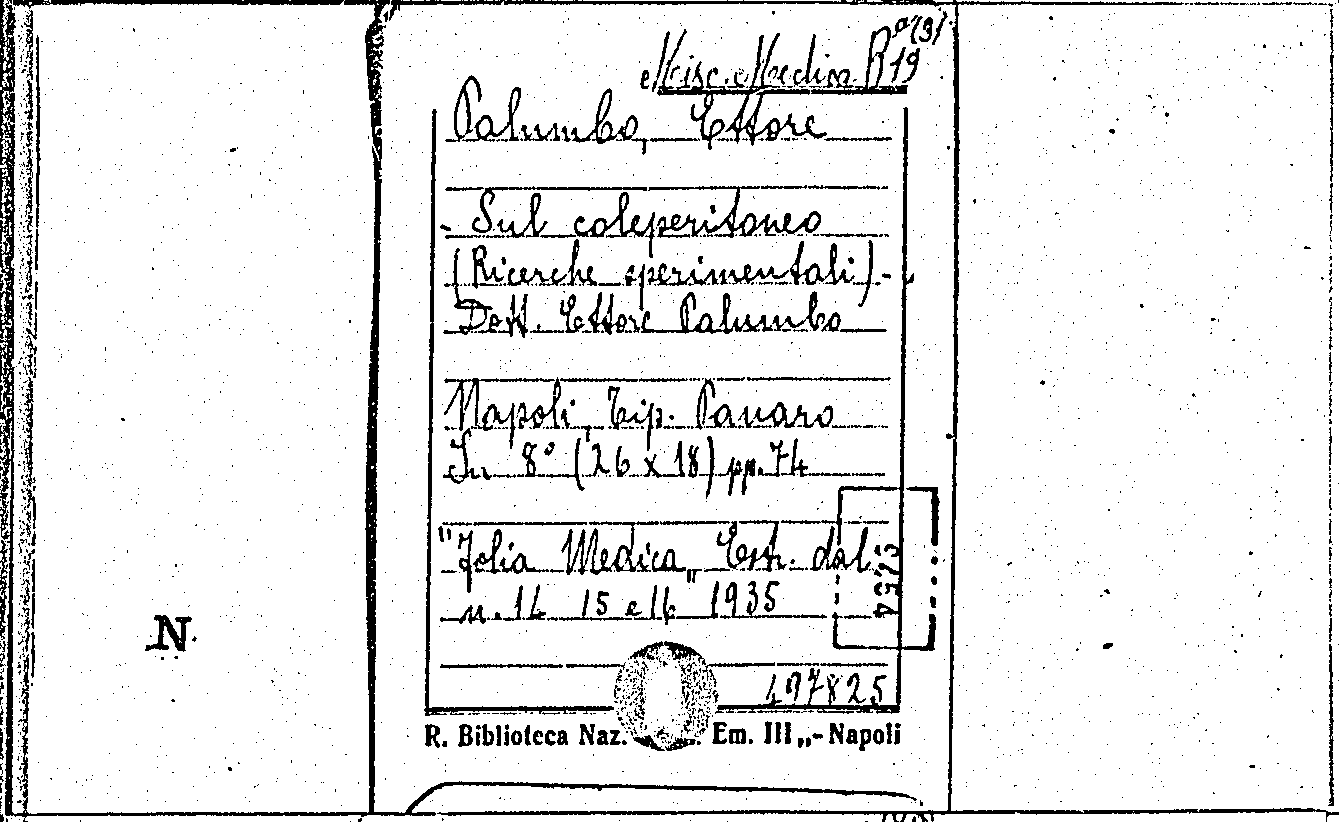 Misc. Medica B 19 a(3)
Palumbo, Ettore
- Sul coleperitoneo
(Ricerche sperimentali)-
Dott. Ettore Palumbo
Napoli, Tip. Panaro
In 8° (26 x 18) pp. 74
"Folia Medica" Estr. dal
n. 14 15 e 16 1935
497825
R. Biblioteca Naz. Em. III „- Napoli
N